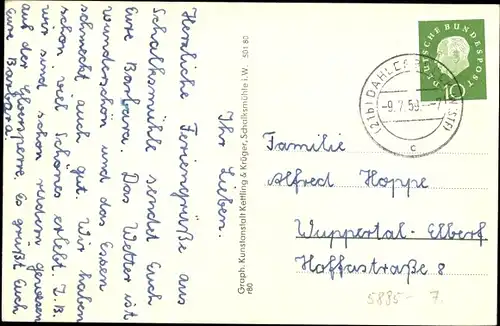 Ihr Lieben.
Herzliche Feriengrüße aus
Schalksmühle sendet Euch
Eure Barbara. Das Wetter ist
wunderschön und das Essen
schmeckt auch gut. Wir haben
schon viel Schönes erlebt. Z.B.
wir sind schon rudern gewesen
auf der Glörsperre. Es grüßt Euch
Eure Barbara!
Graph. Kunstanstalt Kettling & Krüger, Schalksmühle i.W. 501 80
r80
DEUTSCHE BUNDESPOST
10
(21b) DAHLERBRÜCK
-9.7.59.--7
c
Familie
Alfred Hoppe
Wuppertal-Elberf
Hoffastraße 8
5885- 7.